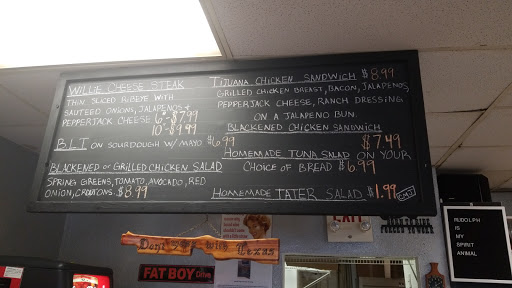 WILLIE CHEESE STEAK
THIN SLICED RIBEYE WITH
SAUTEED ONIONS, JALAPENOS +
PEPPERJACK CHEESE 6" $7.99
10" $9.99
BLT ON SOURDOUGH W/MAYO $6.99
BLACKENED OR GRILLED CHICKEN SALAD
SPRING GREENS, TOMATO, AVOCADO, RED
ONION, CROUTONS $8.99
TIJUANA CHICKEN SANDWICH $8.99
GRILLED CHICKEN BREAST, BACON, JALAPENOS,
PEPPERJACK CHEESE, RANCH DRESSING
ON A JALAPENO BUN.
BLACKENED CHICKEN SANDWICH
$7.49
HOMEMADE TUNA SALAD ON YOUR
CHOICE OF BREAD $6.99
HOMEMADE TATER SALAD $1.99
Don't with Texas
FAT BOY Drive
EXIT
RUDOLPH
IS
MY
SPIRIT
ANIMAL